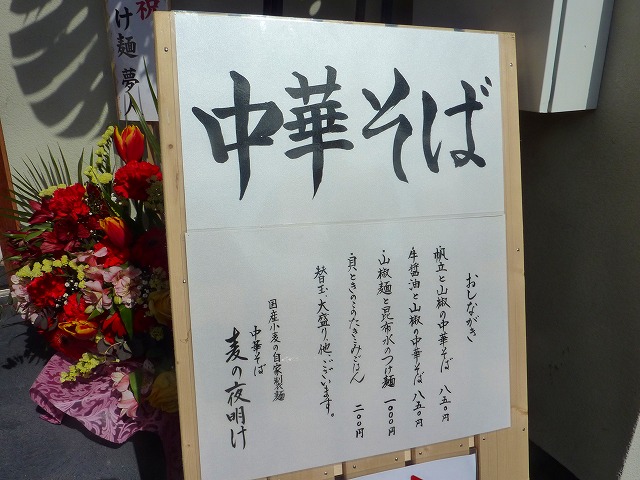 祝
け麺 夢
中華そば
おしながき
・帆立と山椒の中華そば 八五〇円
・生醤油と山椒の中華そば 八五〇円
・山椒麺と昆布水のつけ麺 一〇〇〇円
・貝ときのこのたきこみごはん 二〇〇円
替玉、大盛り他ございます。
国産小麦の自家製麺
中華そば
麦の夜明け